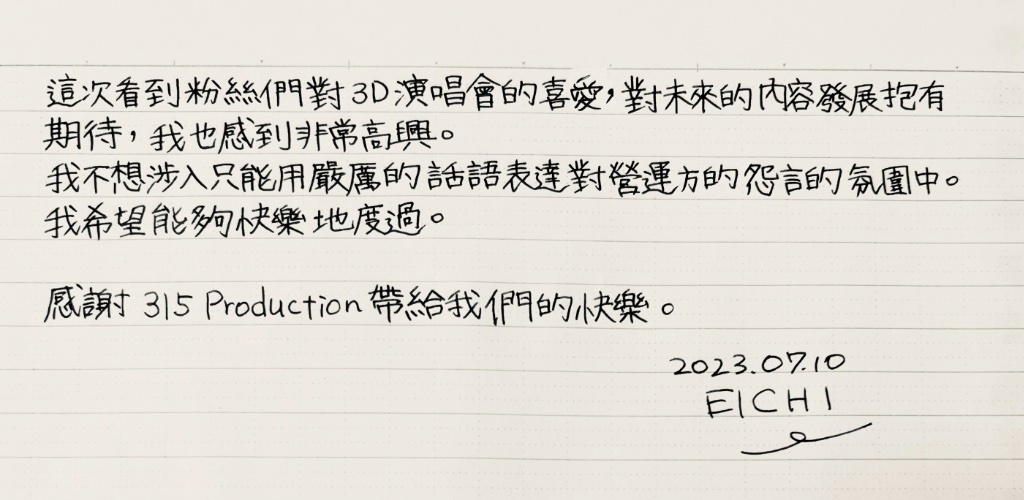 這次看到粉絲們對3D演唱會的喜愛，對未來的內容發展抱有
期待，我也感到非常高興。
我不想涉入只能用嚴厲的話語表達對營運方的怨言的氛圍中。
我希望能夠快樂地度過。
感謝 315 Production 帶給我們的快樂。
2023.07.10
EICHI